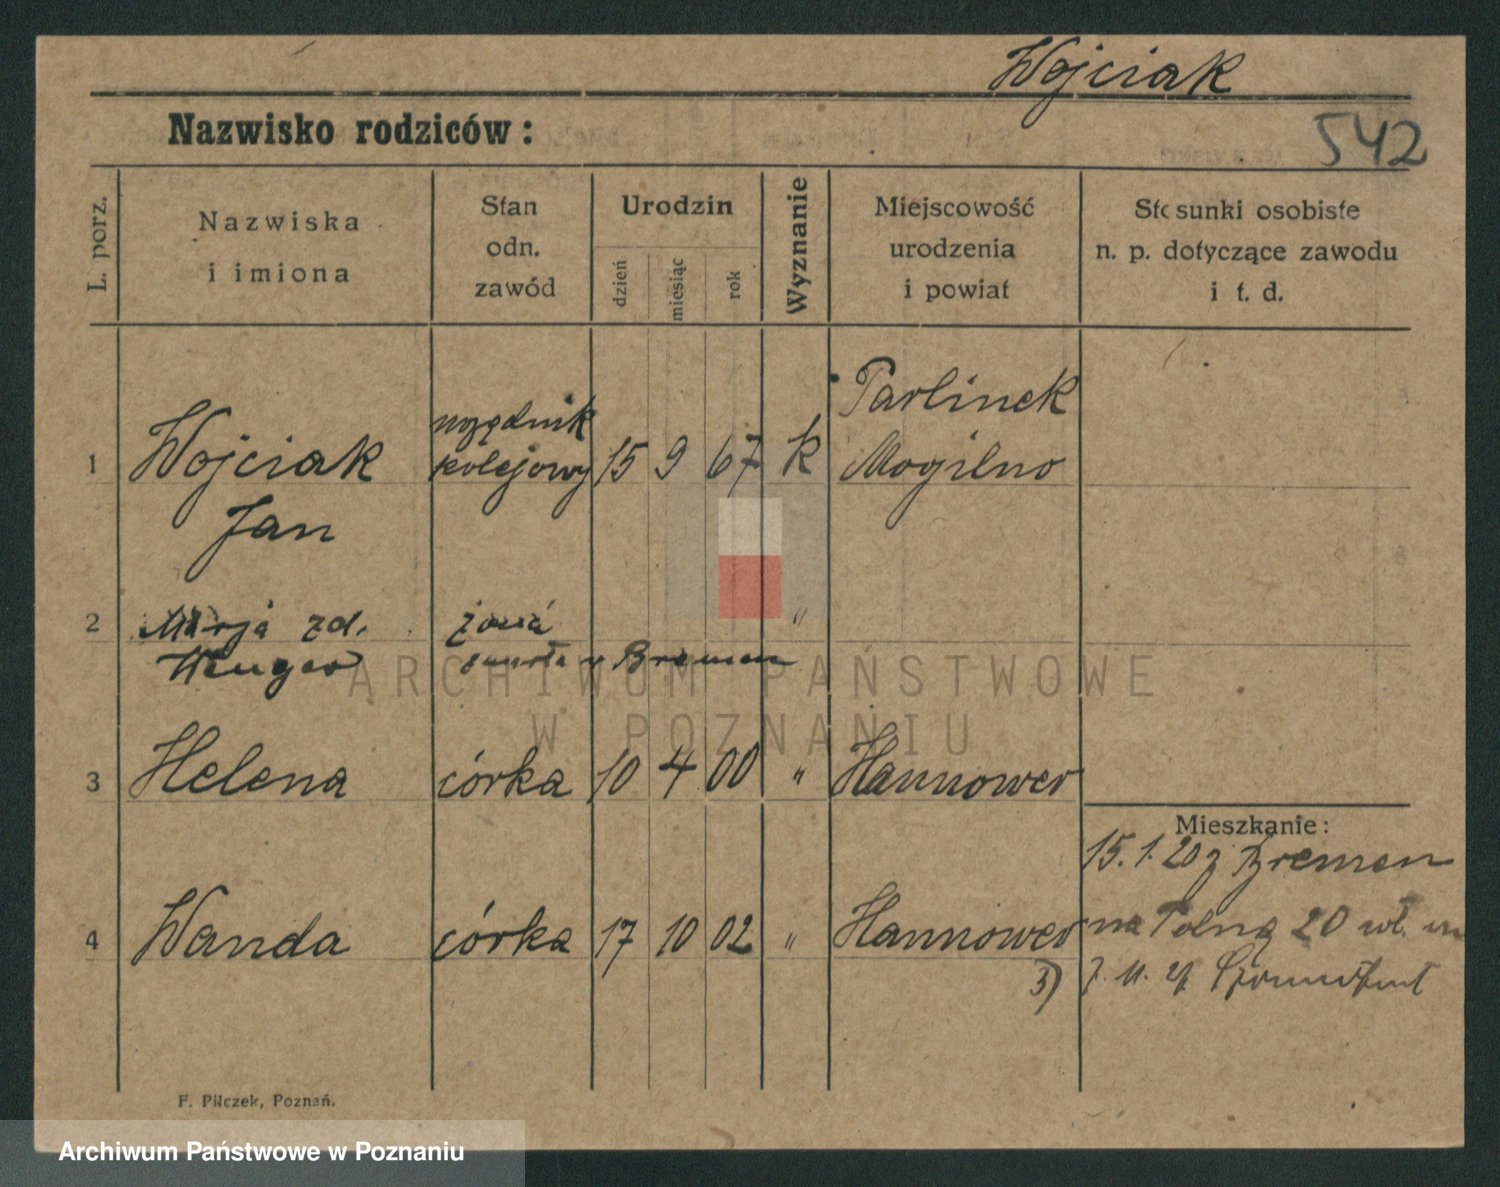 Wojciak
Nazwisko rodziców:
542
L. porz.
Nazwiska
i imiona
Stan
odn.
zawód
Urodzin
dzień
miesiąc
rok
Wyznanie
Miejscowość
urodzenia
i powiat
Stosunki osobiste
n. p. dotyczące zawodu
i t. d.
1 Wojciak urzędnik kolejowy 15 9 67 k Parlinek Mogilno
Jan
2 Marja zd. żona "
zmarła w Bremen
3 Helena córka 10 4 00 " Hannower
Mieszkanie:
15.1.20 z Bremen
4 Wanda córka 17 10 02 " Hannower
na Polną 20 wł.
3)
F. Pilczek, Poznań.
ARCHIWUM PAŃSTWOWE
W POZNANIU
Archiwum Państwowe w Poznaniu